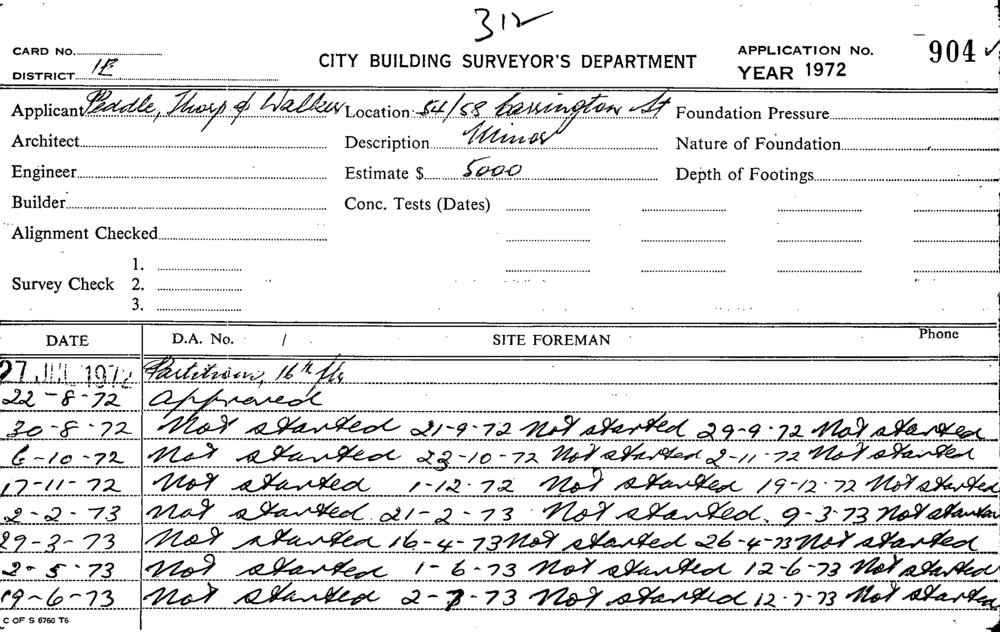 312
CARD No.
DISTRICT 1E
CITY BUILDING SURVEYOR'S DEPARTMENT
APPLICATION No. 904 ✓
YEAR 1972
Applicant Peddle, Thorp & Walker Location 54/58 Carrington St Foundation Pressure
Architect Description Minor Nature of Foundation
Engineer Estimate $ 5000 Depth of Footings
Builder Conc. Tests (Dates)
Alignment Checked
1.
Survey Check 2.
3.
DATE D.A. No. / SITE FOREMAN Phone
27 JUL 1972 Partitions, 16th flr
22-8-72 Approved
30-8-72 Not started 21-9-72 Not started 29-9-72 Not started
6-10-72 Not started 23-10-72 Not started 2-11-72 Not started
17-11-72 Not started 1-12-72 Not started 19-12-72 Not started
2-2-73 Not started 21-2-73 Not started. 9-3-73 Not started
29-3-73 Not started 16-4-73 Not started 26-4-73 Not started
2-5-73 Not started 1-6-73 Not started 12-6-73 Not started
19-6-73 Not started 2-7-73 Not started 12-7-73 Not started
C OF S 6760 T6